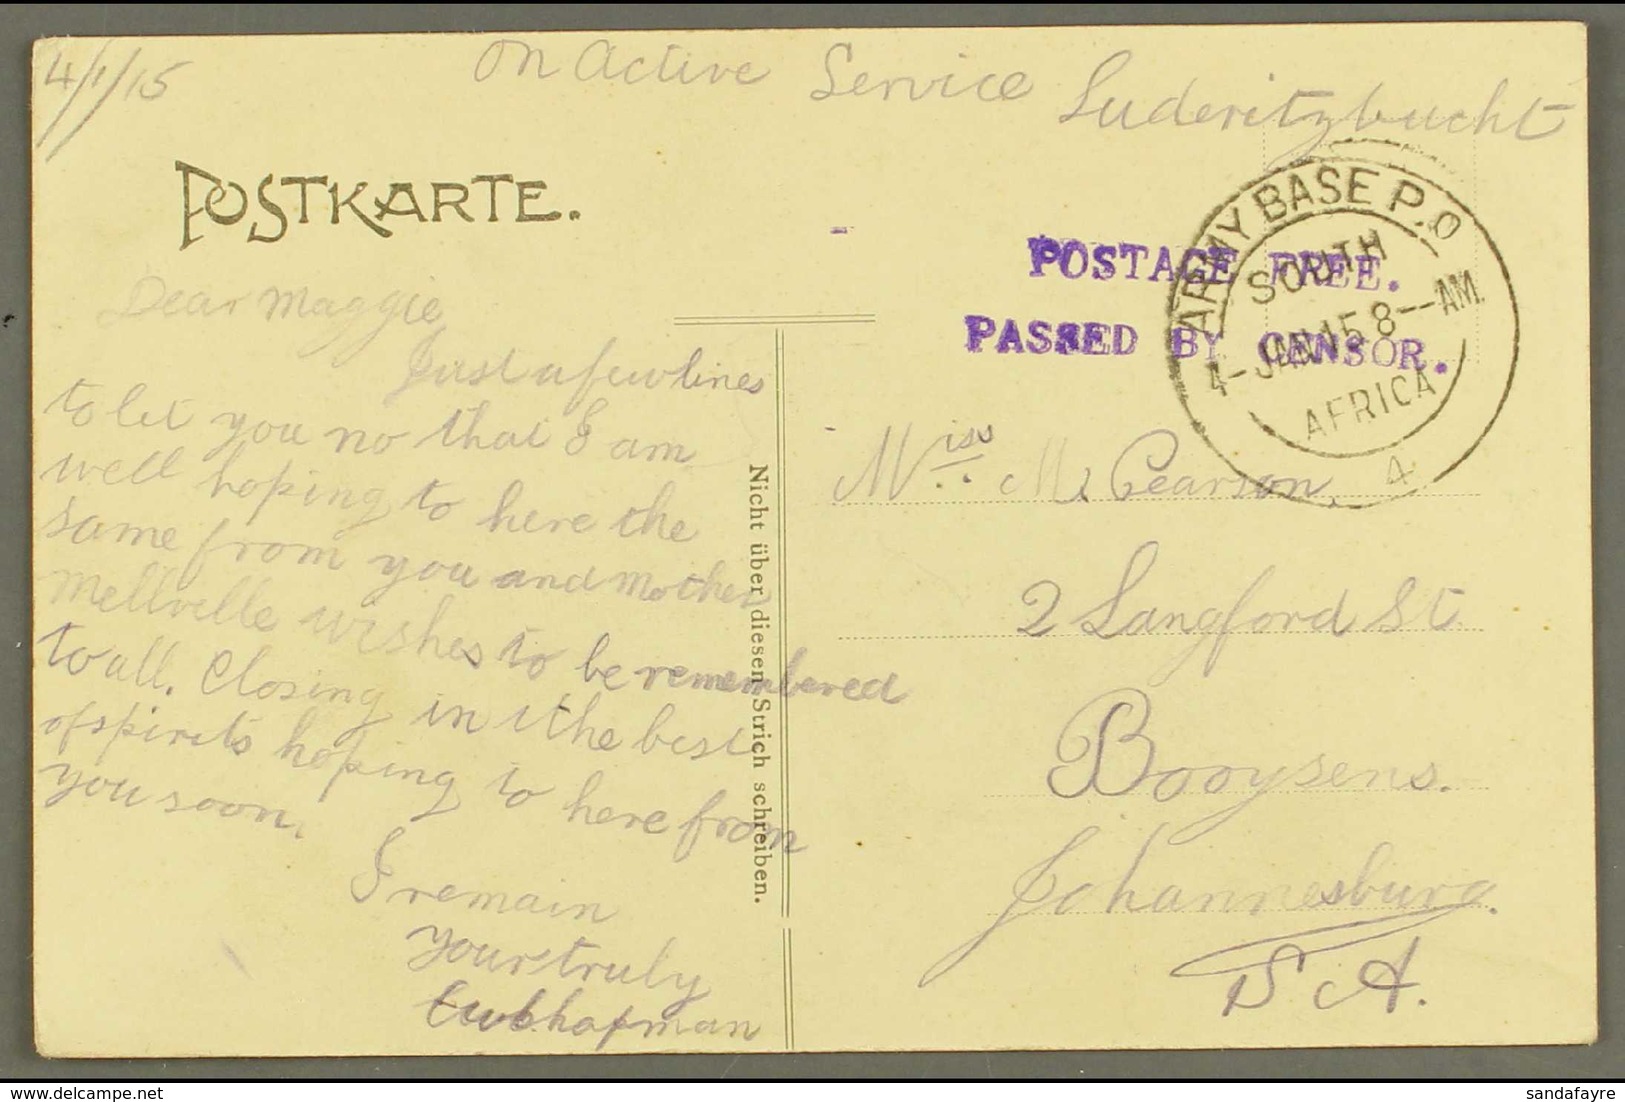 4/1/15
On Active Service Luderitzbucht
POSTKARTE.
Dear Maggie
Just a few lines
to let you no that I am
well hoping to here the
same from you and Mother
Mellville wishes to be remembered
to all. Closing in the best
of spirits hoping to here from
you soon.
I remain
yours truly
Chapman
Nicht über diesen Strich schreiben.
POSTAGE FREE.
PASSED BY CENSOR.
ARMY BASE P.O
SOUTH
4-JAN.15 8--AM.
AFRICA
4
Miss M. Pearson.
2 Langford St.
Booysens.
Johannesburg.
S.A.
delcampe.net
sandafayre